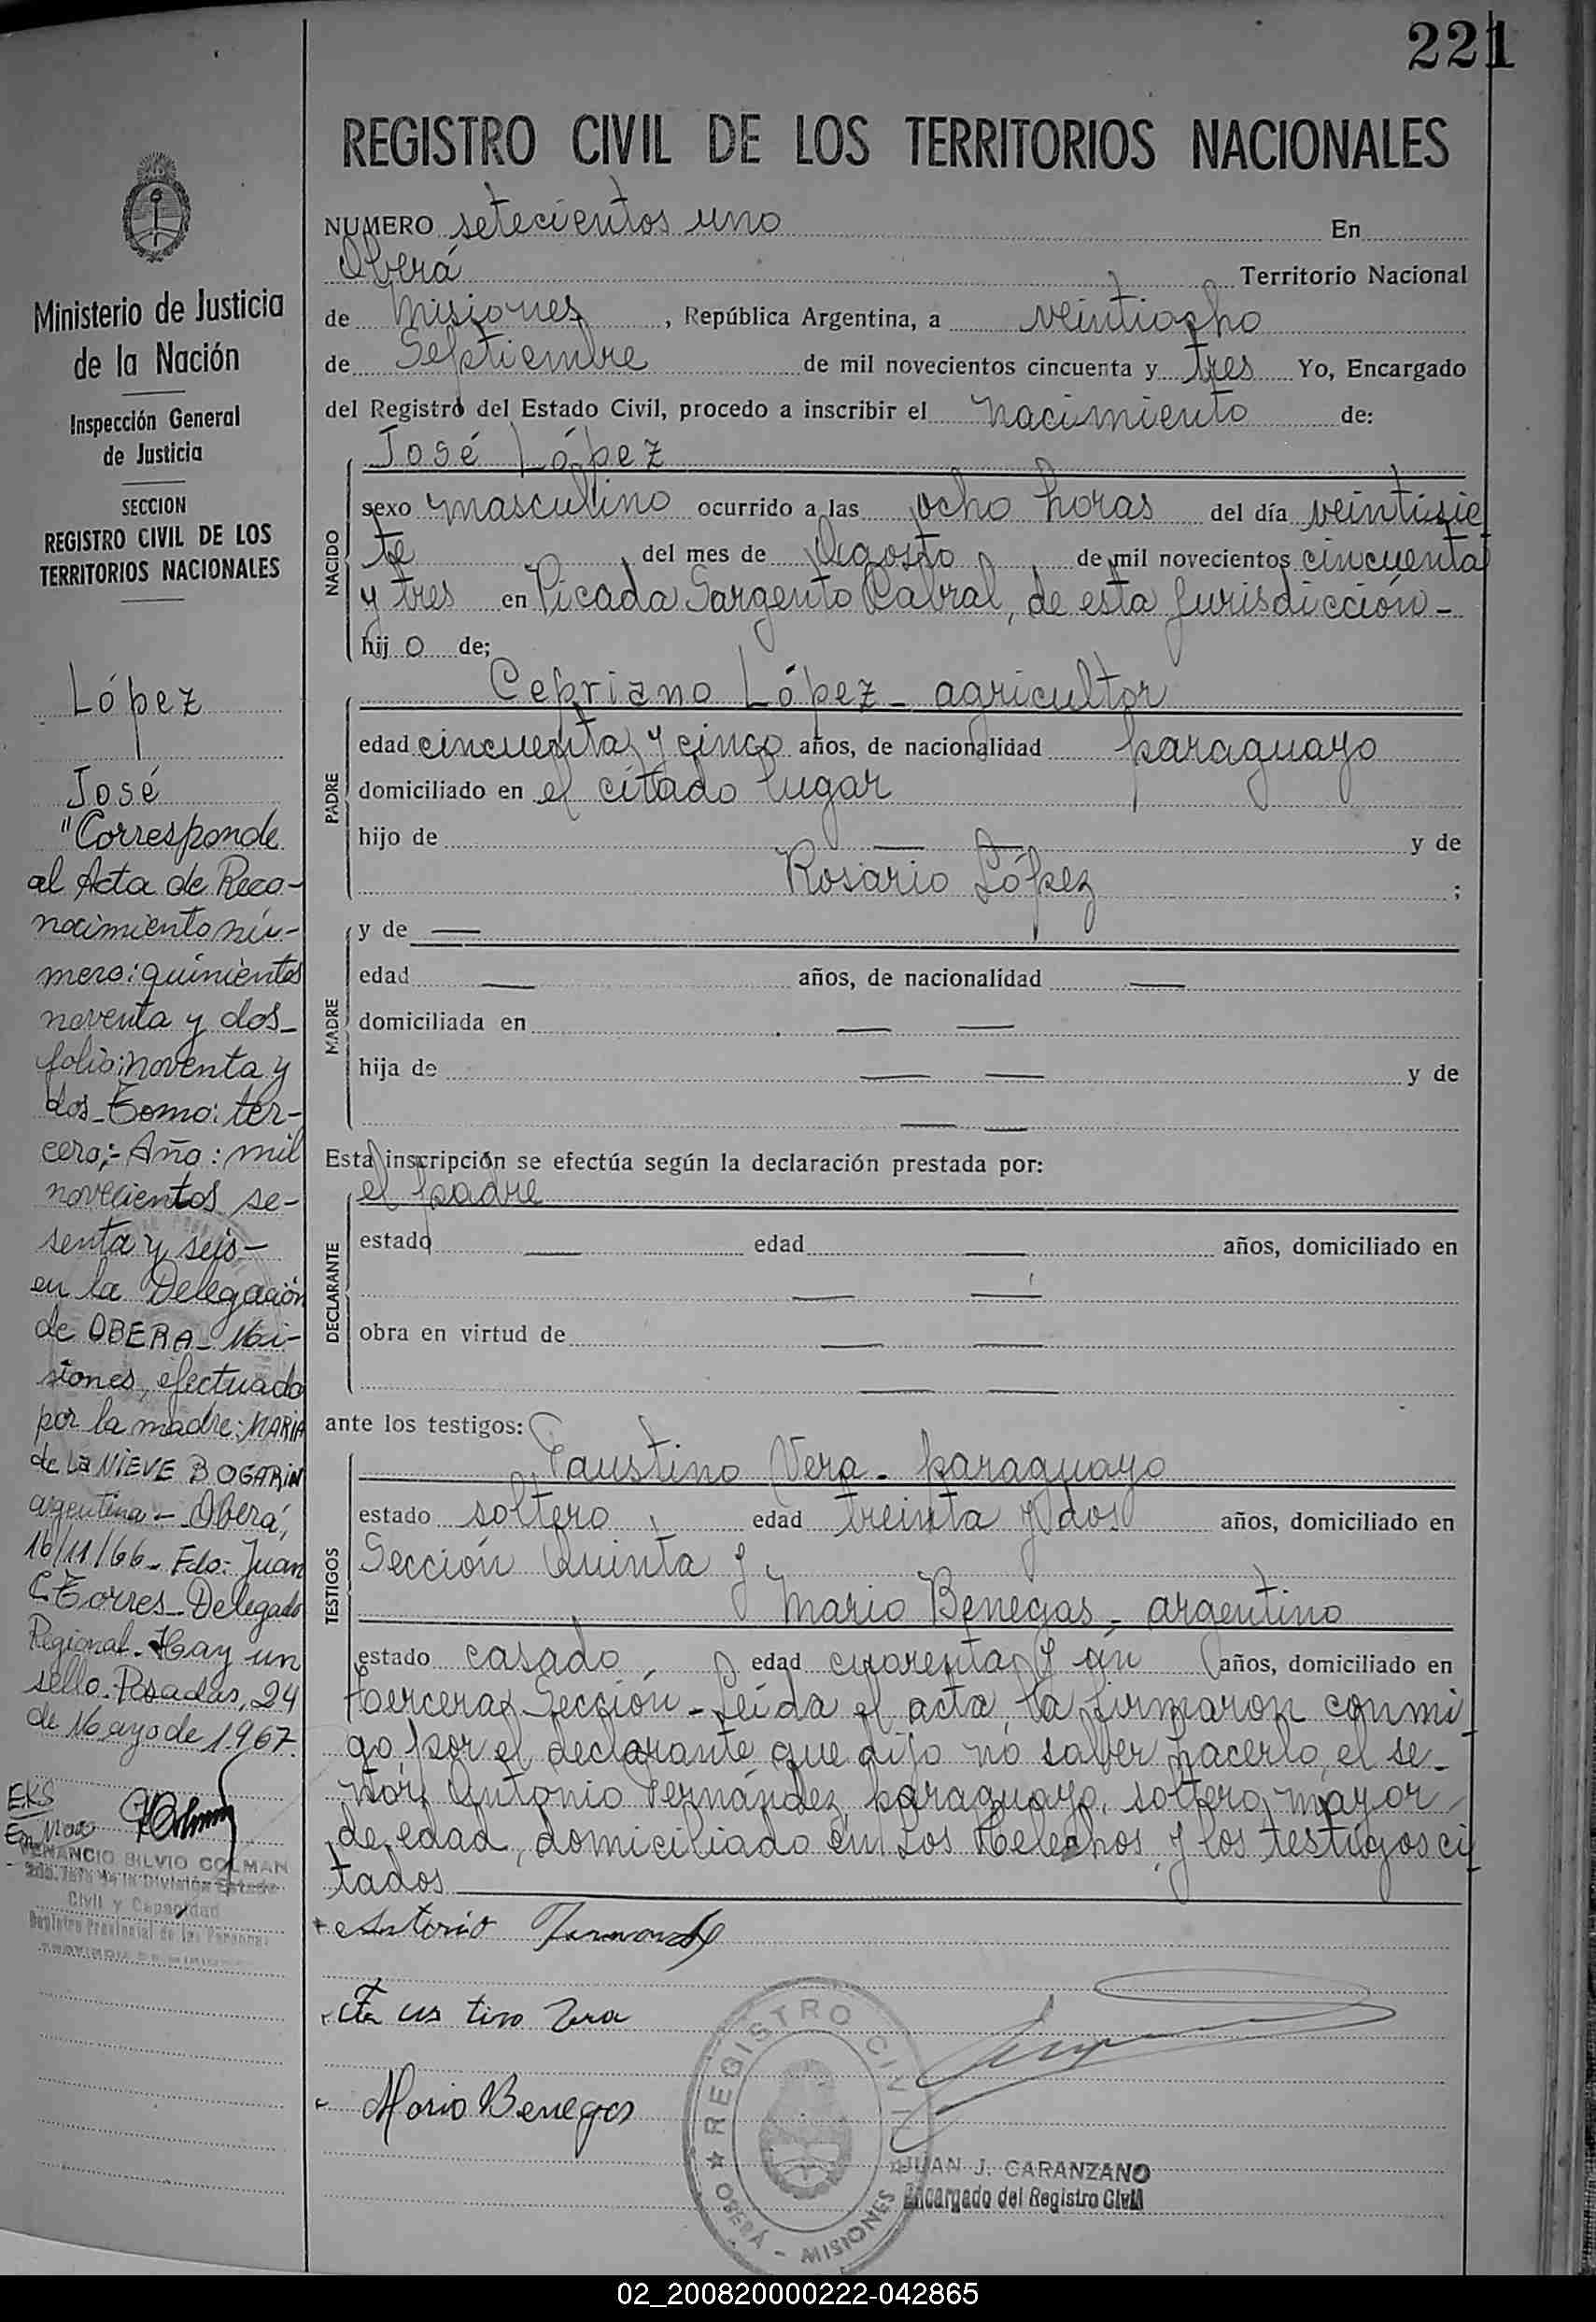 221
REGISTRO CIVIL DE LOS TERRITORIOS NACIONALES
Ministerio de Justicia
de la Nación
Inspección General
de Justicia
SECCION
REGISTRO CIVIL DE LOS
TERRITORIOS NACIONALES
López
José
"Corresponde
al Acta de Reco-
nocimiento nú-
mero: quinientos
noventa y dos-
folio: noventa y
dos- Tomo: ter-
cero;- Año: mil
novecientos se-
senta y seis-
en la Delegación
de OBERA- Mi-
siones, efectuado
por la madre: MARIA
de La NIEVE BOGARIN
argentina - Oberá,
16/11/66- Fdo: Juan
C. Torres- Delegado
Regional. Hay un
sello. Posadas, 24
de Mayo de 1.967.
EKS
VENANCIO SILVIO COLMAN
Civil y Capacidad
Registro Provincial de las Personas
NUMERO setecientos uno En
Oberá Territorio Nacional
de Misiones, República Argentina, a veintiocho
de Septiembre de mil novecientos cincuenta y tres Yo, Encargado
del Registro del Estado Civil, procedo a inscribir el nacimiento de:
José López
NACIDO
sexo masculino ocurrido a las ocho horas del día veintisie
te del mes de Agosto de mil novecientos cincuenta
y tres en Picada Sargento Cabral, de esta Jurisdicción-
hij o de;
Cepriano López - agricultor
PADRE
edad cincuenta y cinco años, de nacionalidad paraguayo
domiciliado en el citado lugar
hijo de — — y de
Rosario López ;
MADRE
y de —
edad — años, de nacionalidad —
domiciliada en — —
hija de — — y de
— —
Esta inscripción se efectúa según la declaración prestada por:
el padre
DECLARANTE
estado — edad — años, domiciliado en
— —
obra en virtud de — —
— —
ante los testigos:
Faustino Vera - paraguayo
TESTIGOS
estado soltero, edad treinta y dos años, domiciliado en
Sección Quinta y
Mario Benegas - argentino
estado casado, edad cuorenta y un años, domiciliado en
tercera Sección - Leída el acta, la firmaron conmi
go, por el declarante que dijo no saber hacerlo, el se-
ñor Antonio Fernández, paraguayo, soltero, mayor
de edad, domiciliado en Los Helechos y los testigos ci
tados
Antonio Fernandez
Faustino Vera
Mario Benegas
REGISTRO CIVIL
OBERÁ - MISIONES
JUAN J. CARANZANO
Encargado del Registro Civil
02_200820000222-042865